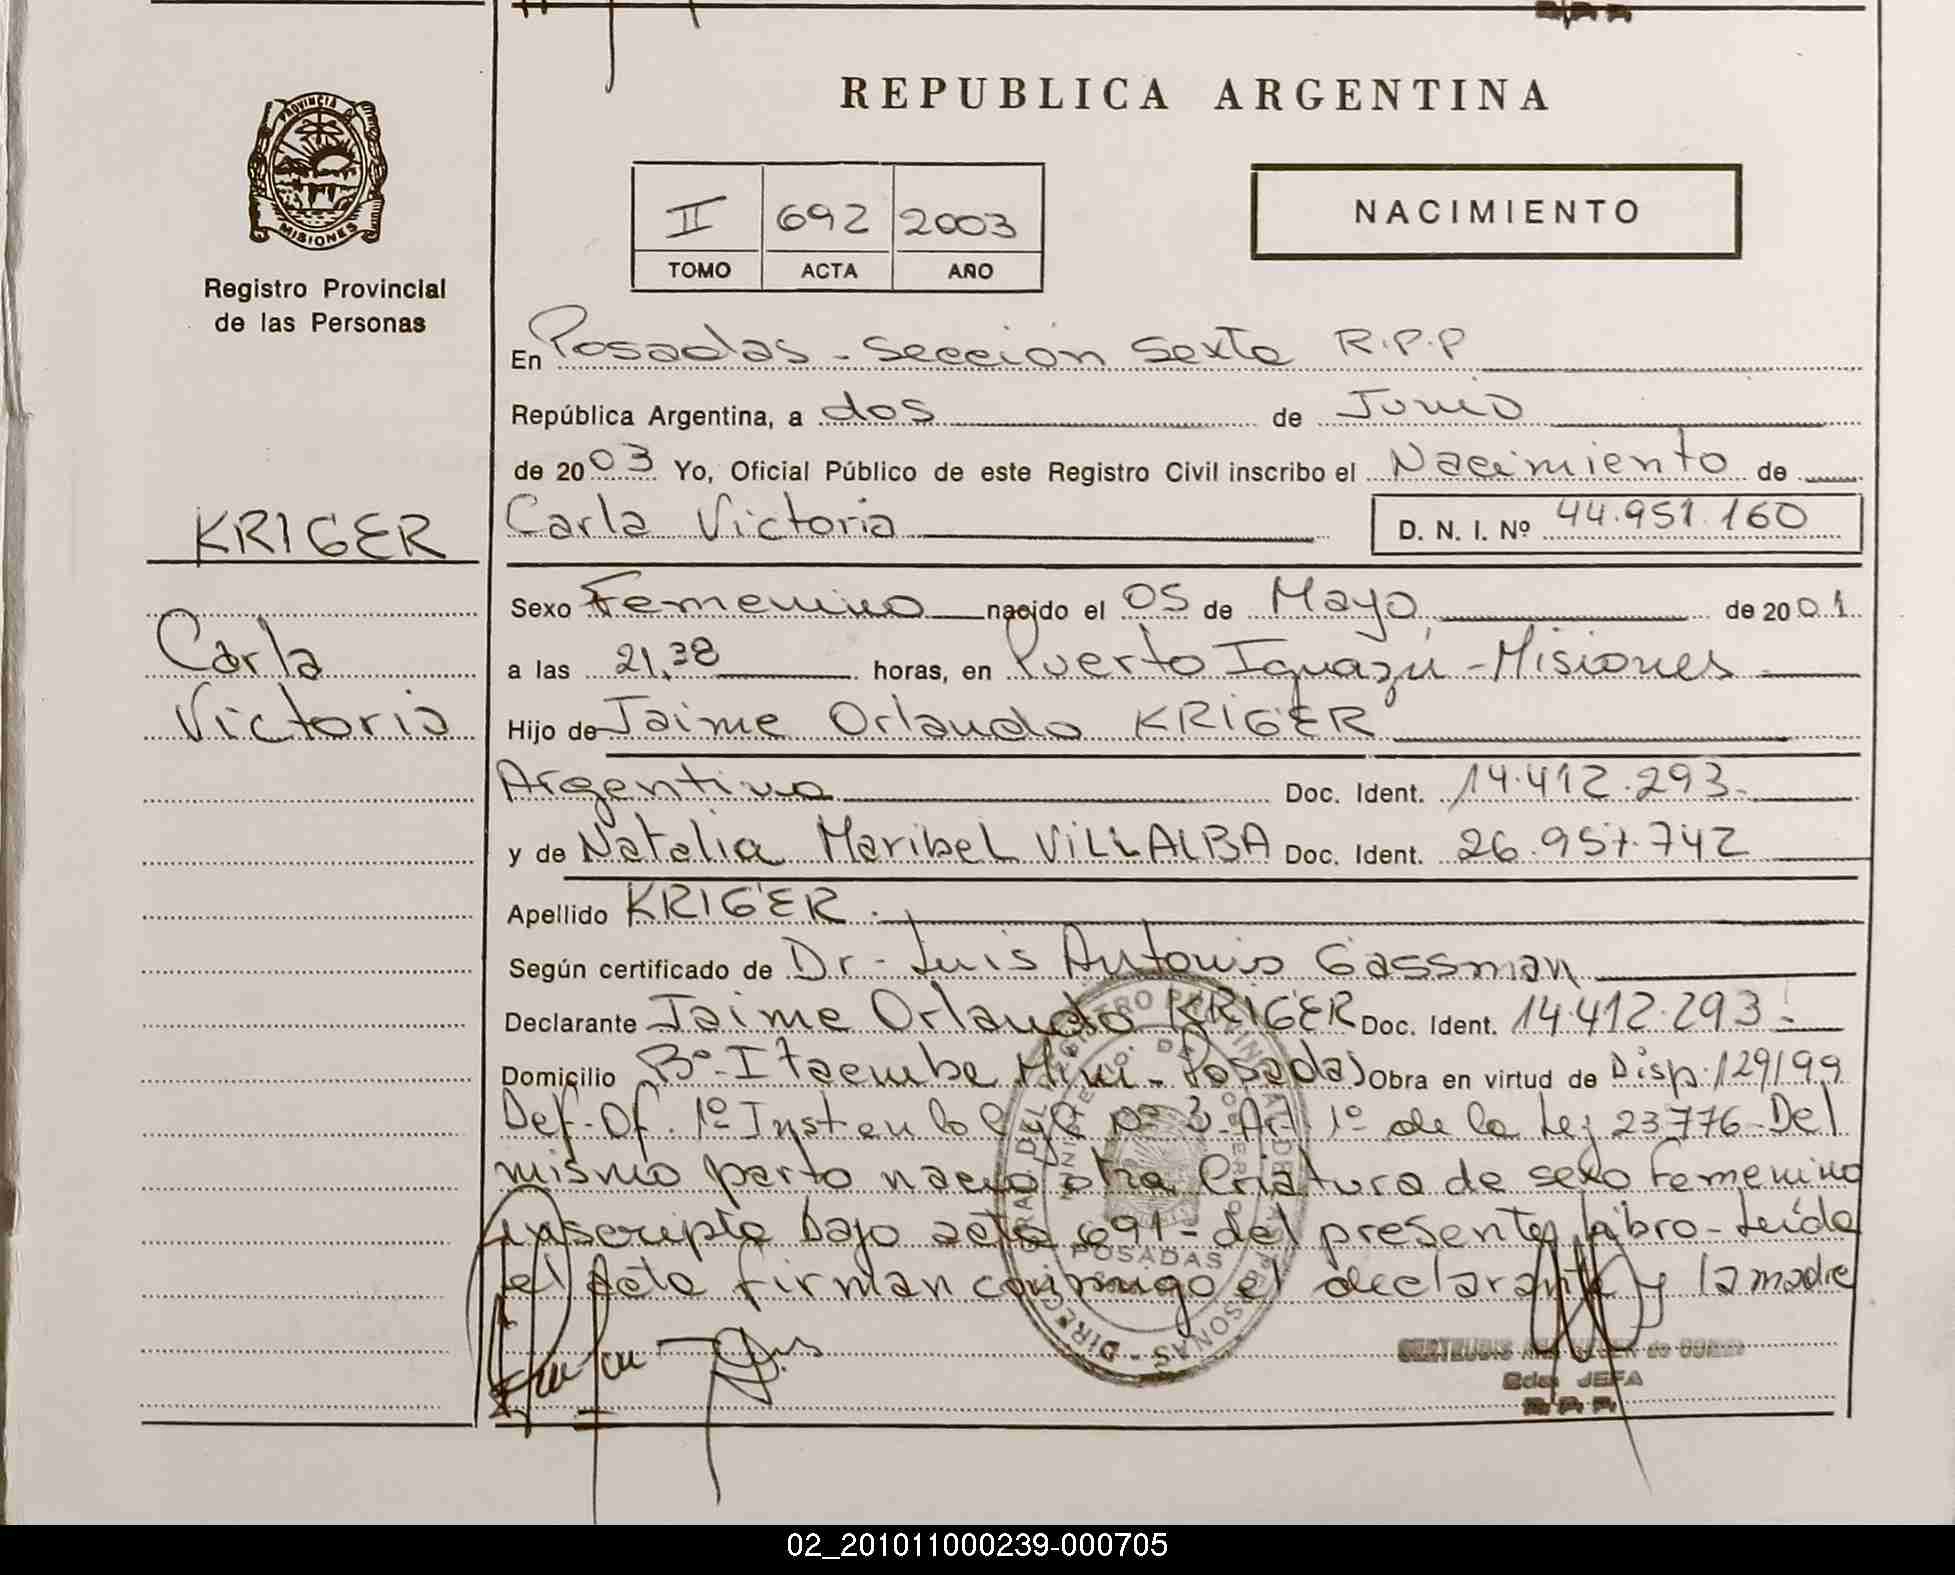 REPUBLICA ARGENTINA
PROVINCIA DE
MISIONES
Registro Provincial
de las Personas
II 692 2003
TOMO ACTA AÑO
NACIMIENTO
En Posadas - Sección Sexta R.P.P
República Argentina, a dos de Junio
de 2003 Yo, Oficial Público de este Registro Civil inscribo el Nacimiento de
KRIGER
Carla Victoria D. N. I. Nº 44.951.160
Sexo Femenino nacido el 05 de Mayo de 2001
Carla
Victoria
a las 21,38 horas, en Puerto Iguazú - Misiones
Hijo de Jaime Orlando KRIGER
Argentino Doc. Ident. 14.412.293.
y de Natalia Maribel VILLALBA Doc. Ident. 26.957.742
Apellido KRIGER.
Según certificado de Dr. Luis Antonio Gassman
Declarante Jaime Orlando KRIGER Doc. Ident. 14.412.293.
Domicilio Bº Itaembe Mini - Posadas Obra en virtud de Disp. 129/99
Def. Of. 1º Inst en lo C y C nº 3. Art 1º de la Ley 23776 - Del
mismo parto nació otra Criatura de sexo Femenino
inscripta bajo acta 691 - del presente libro - Leída
el Acta firman conmigo el declarante y la madre
POSADAS
JEFA
R.P.P.
02_201011000239-000705